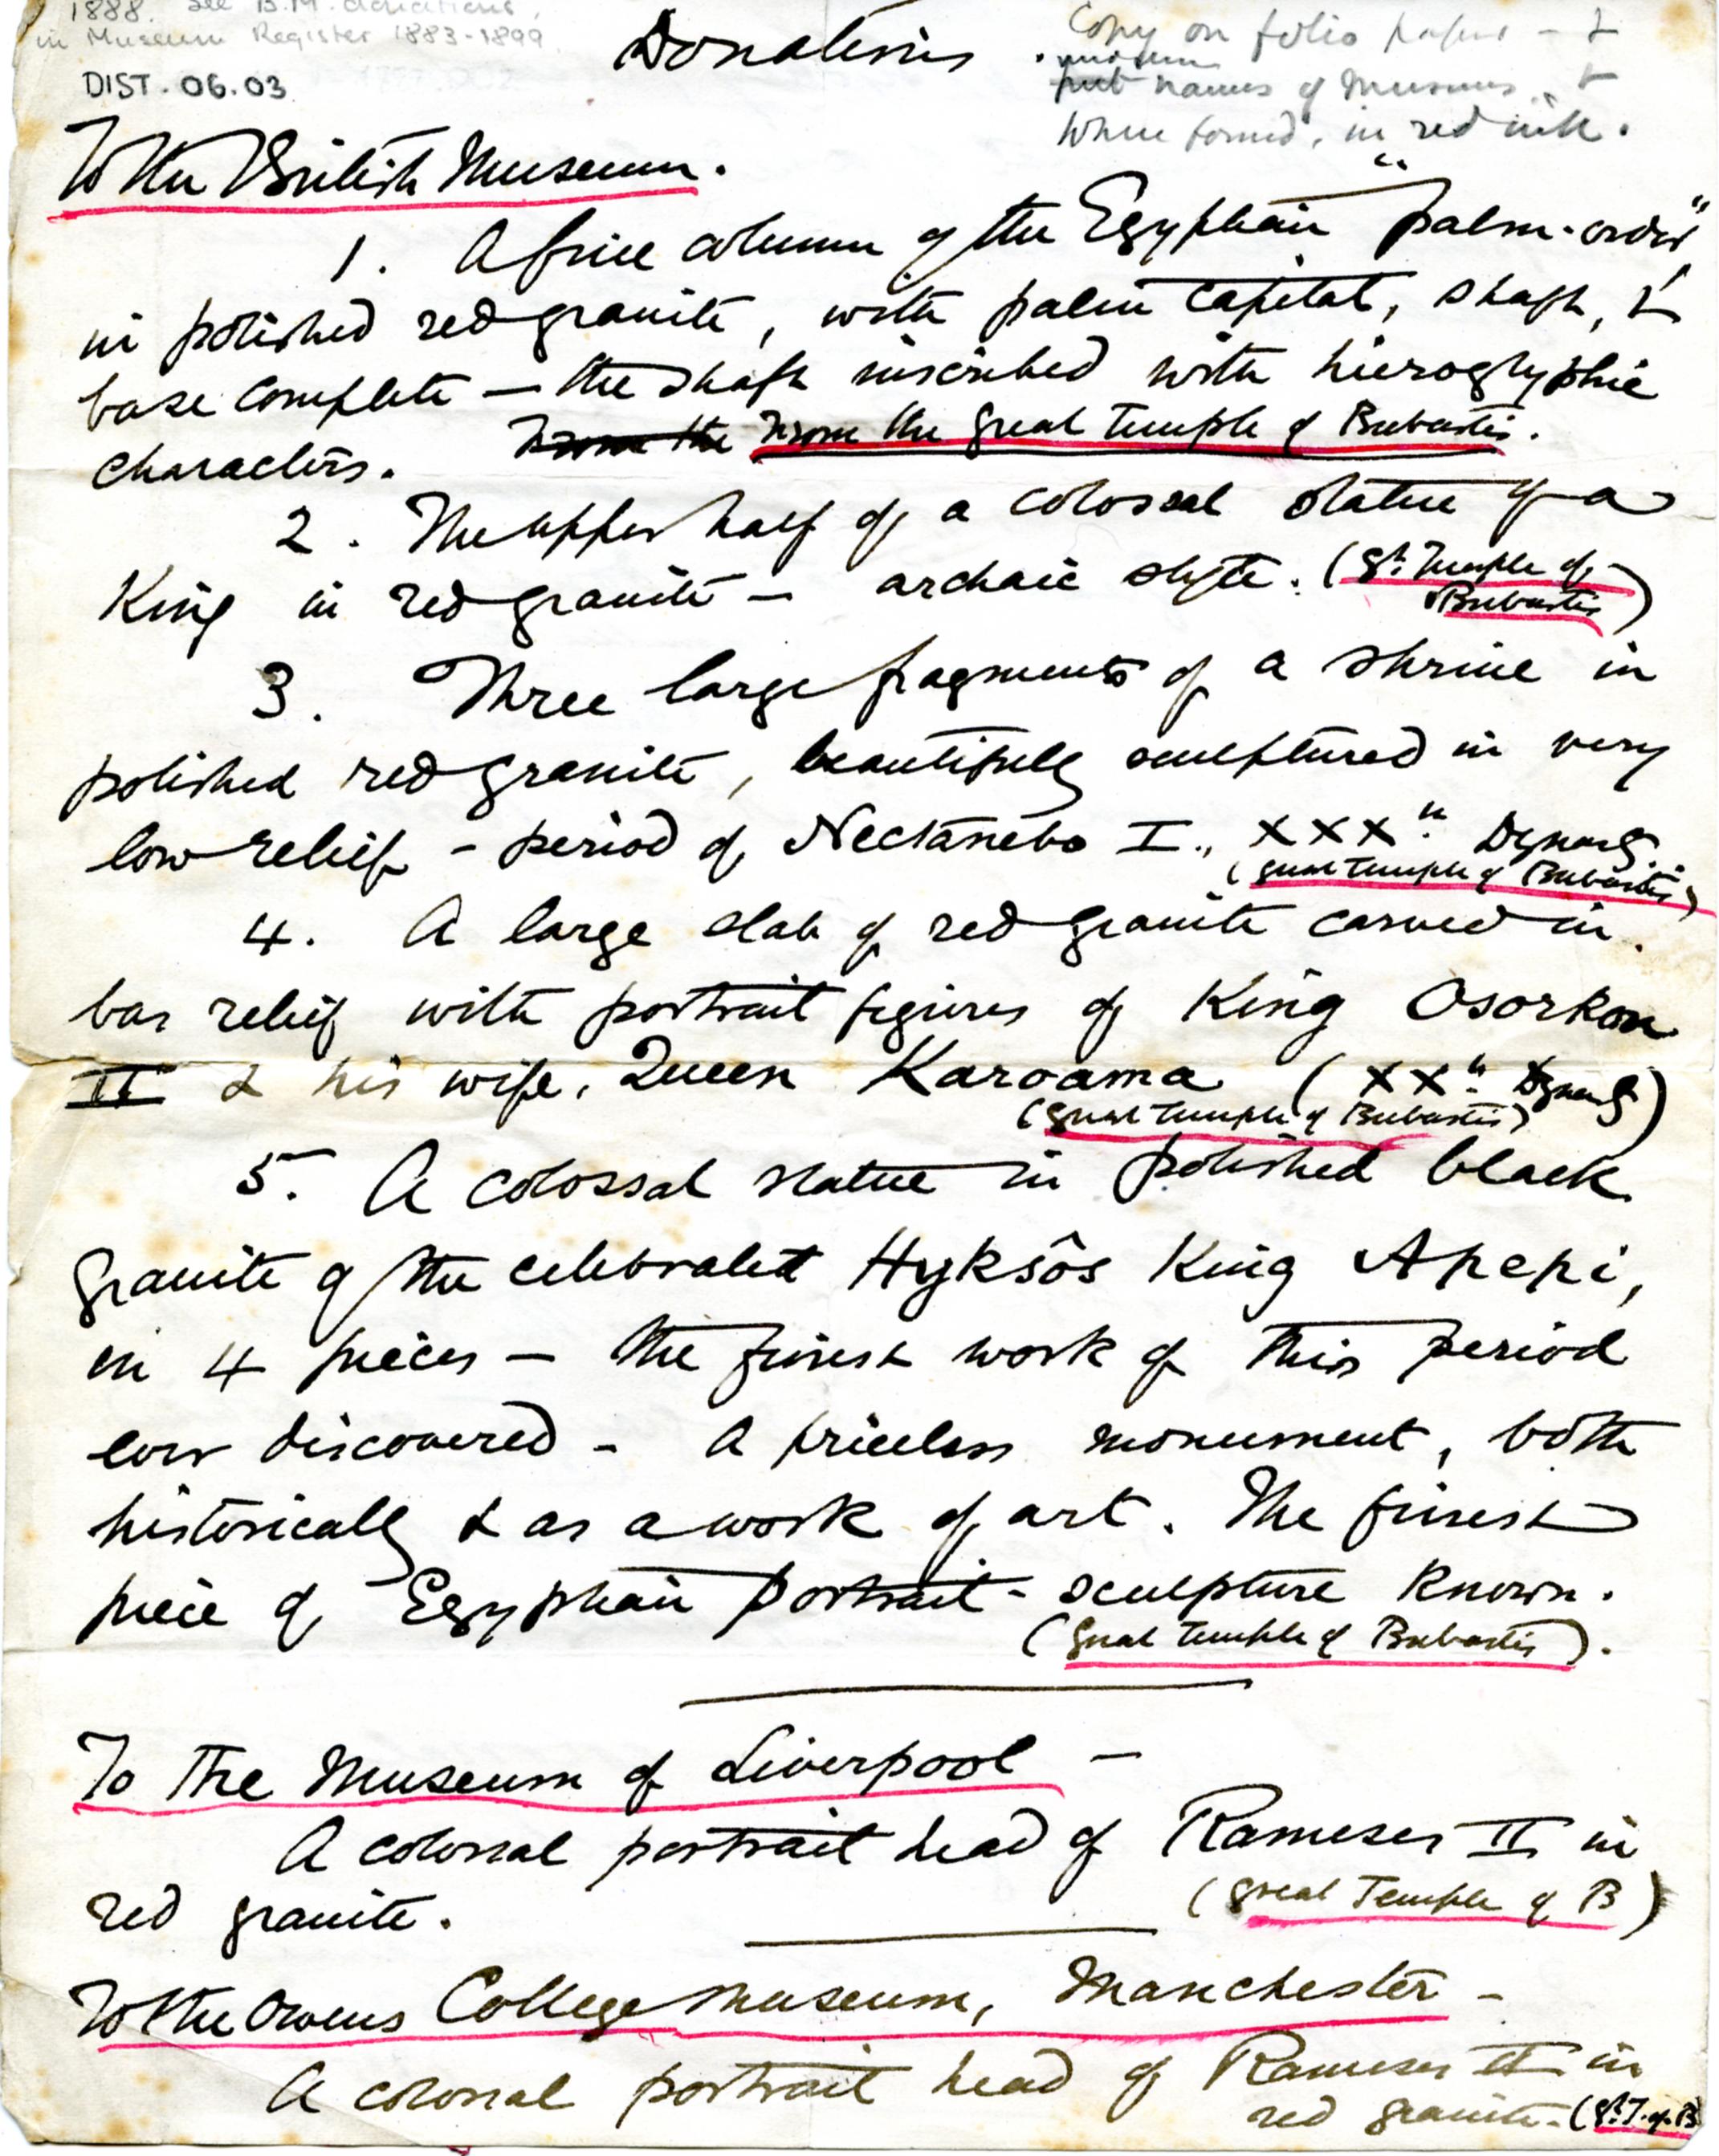 1888. See B.M. donations,
in Museum Register 1883-1899
DIST. 06.03
Donations
Copy on folio paper - &
underline
put names of museums, &
where found, in red ink.
To the British Museum.
1. A fine column of the Egyptian "palm-order",
in polished red granite, with palm capital, shaft, &
base complete — the shaft inscribed with hieroglyphic
characters. From the From the Great Temple of Bubastis.
2. The upper half of a colossal statue of a
King in red granite — archaic style. (Gt. Temple of
Bubastis)
3. Three large fragments of a shrine in
polished red granite, beautifully sculptured in very
low relief - period of Nectanebo I., XXXth Dynasty.
(Great Temple of Bubastis)
4. A large slab of red granite carved in
bas relief with portrait figures of King Osorkon
II & his wife, Queen Karoama (XXth Dynasty)
(Great Temple of Bubastis)
5. A colossal statue in polished black
granite of the celebrated Hyksôs King Apepi,
in 4 pieces — the finest work of this period
ever discovered - A priceless monument, both
historically & as a work of art. The finest
piece of Egyptian portrait-sculpture known.
(Great Temple of Bubastis).
To the Museum of Liverpool —
A colossal portrait head of Rameses II in
red granite. (Great Temple of B)
To the Owens College Museum, Manchester -
A colossal portrait head of Rameses II in
red granite. (Gt. T. of B